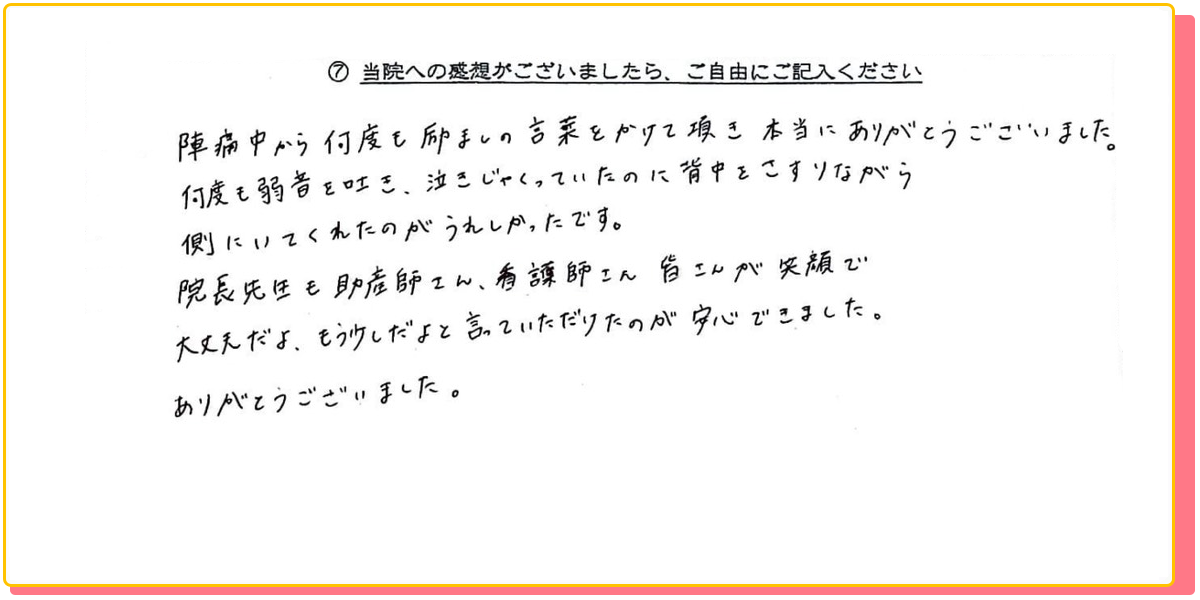 ⑦ 当院への感想がございましたら、ご自由にご記入ください
陣痛中から何度も励ましの言葉をかけて頂き 本当にありがとうございました。
何度も弱音を吐き、泣きじゃくっていたのに背中をさすりながら
側にいてくれたのがうれしかったです。
院長先生も助産師さん、看護師さん 皆さんが笑顔で
大丈夫だよ、もう少しだよと言っていただけたのが安心できました。
ありがとうございました。